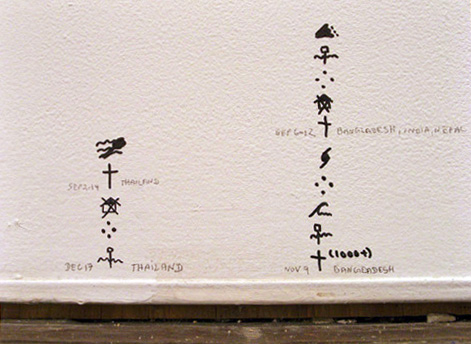 SEP 2-14 THAILAND
DEC 17 THAILAND
SEP 6-12 BANGLADESH, INDIA, NEPAL
(1000+)
NOV 9 BANGLADESH